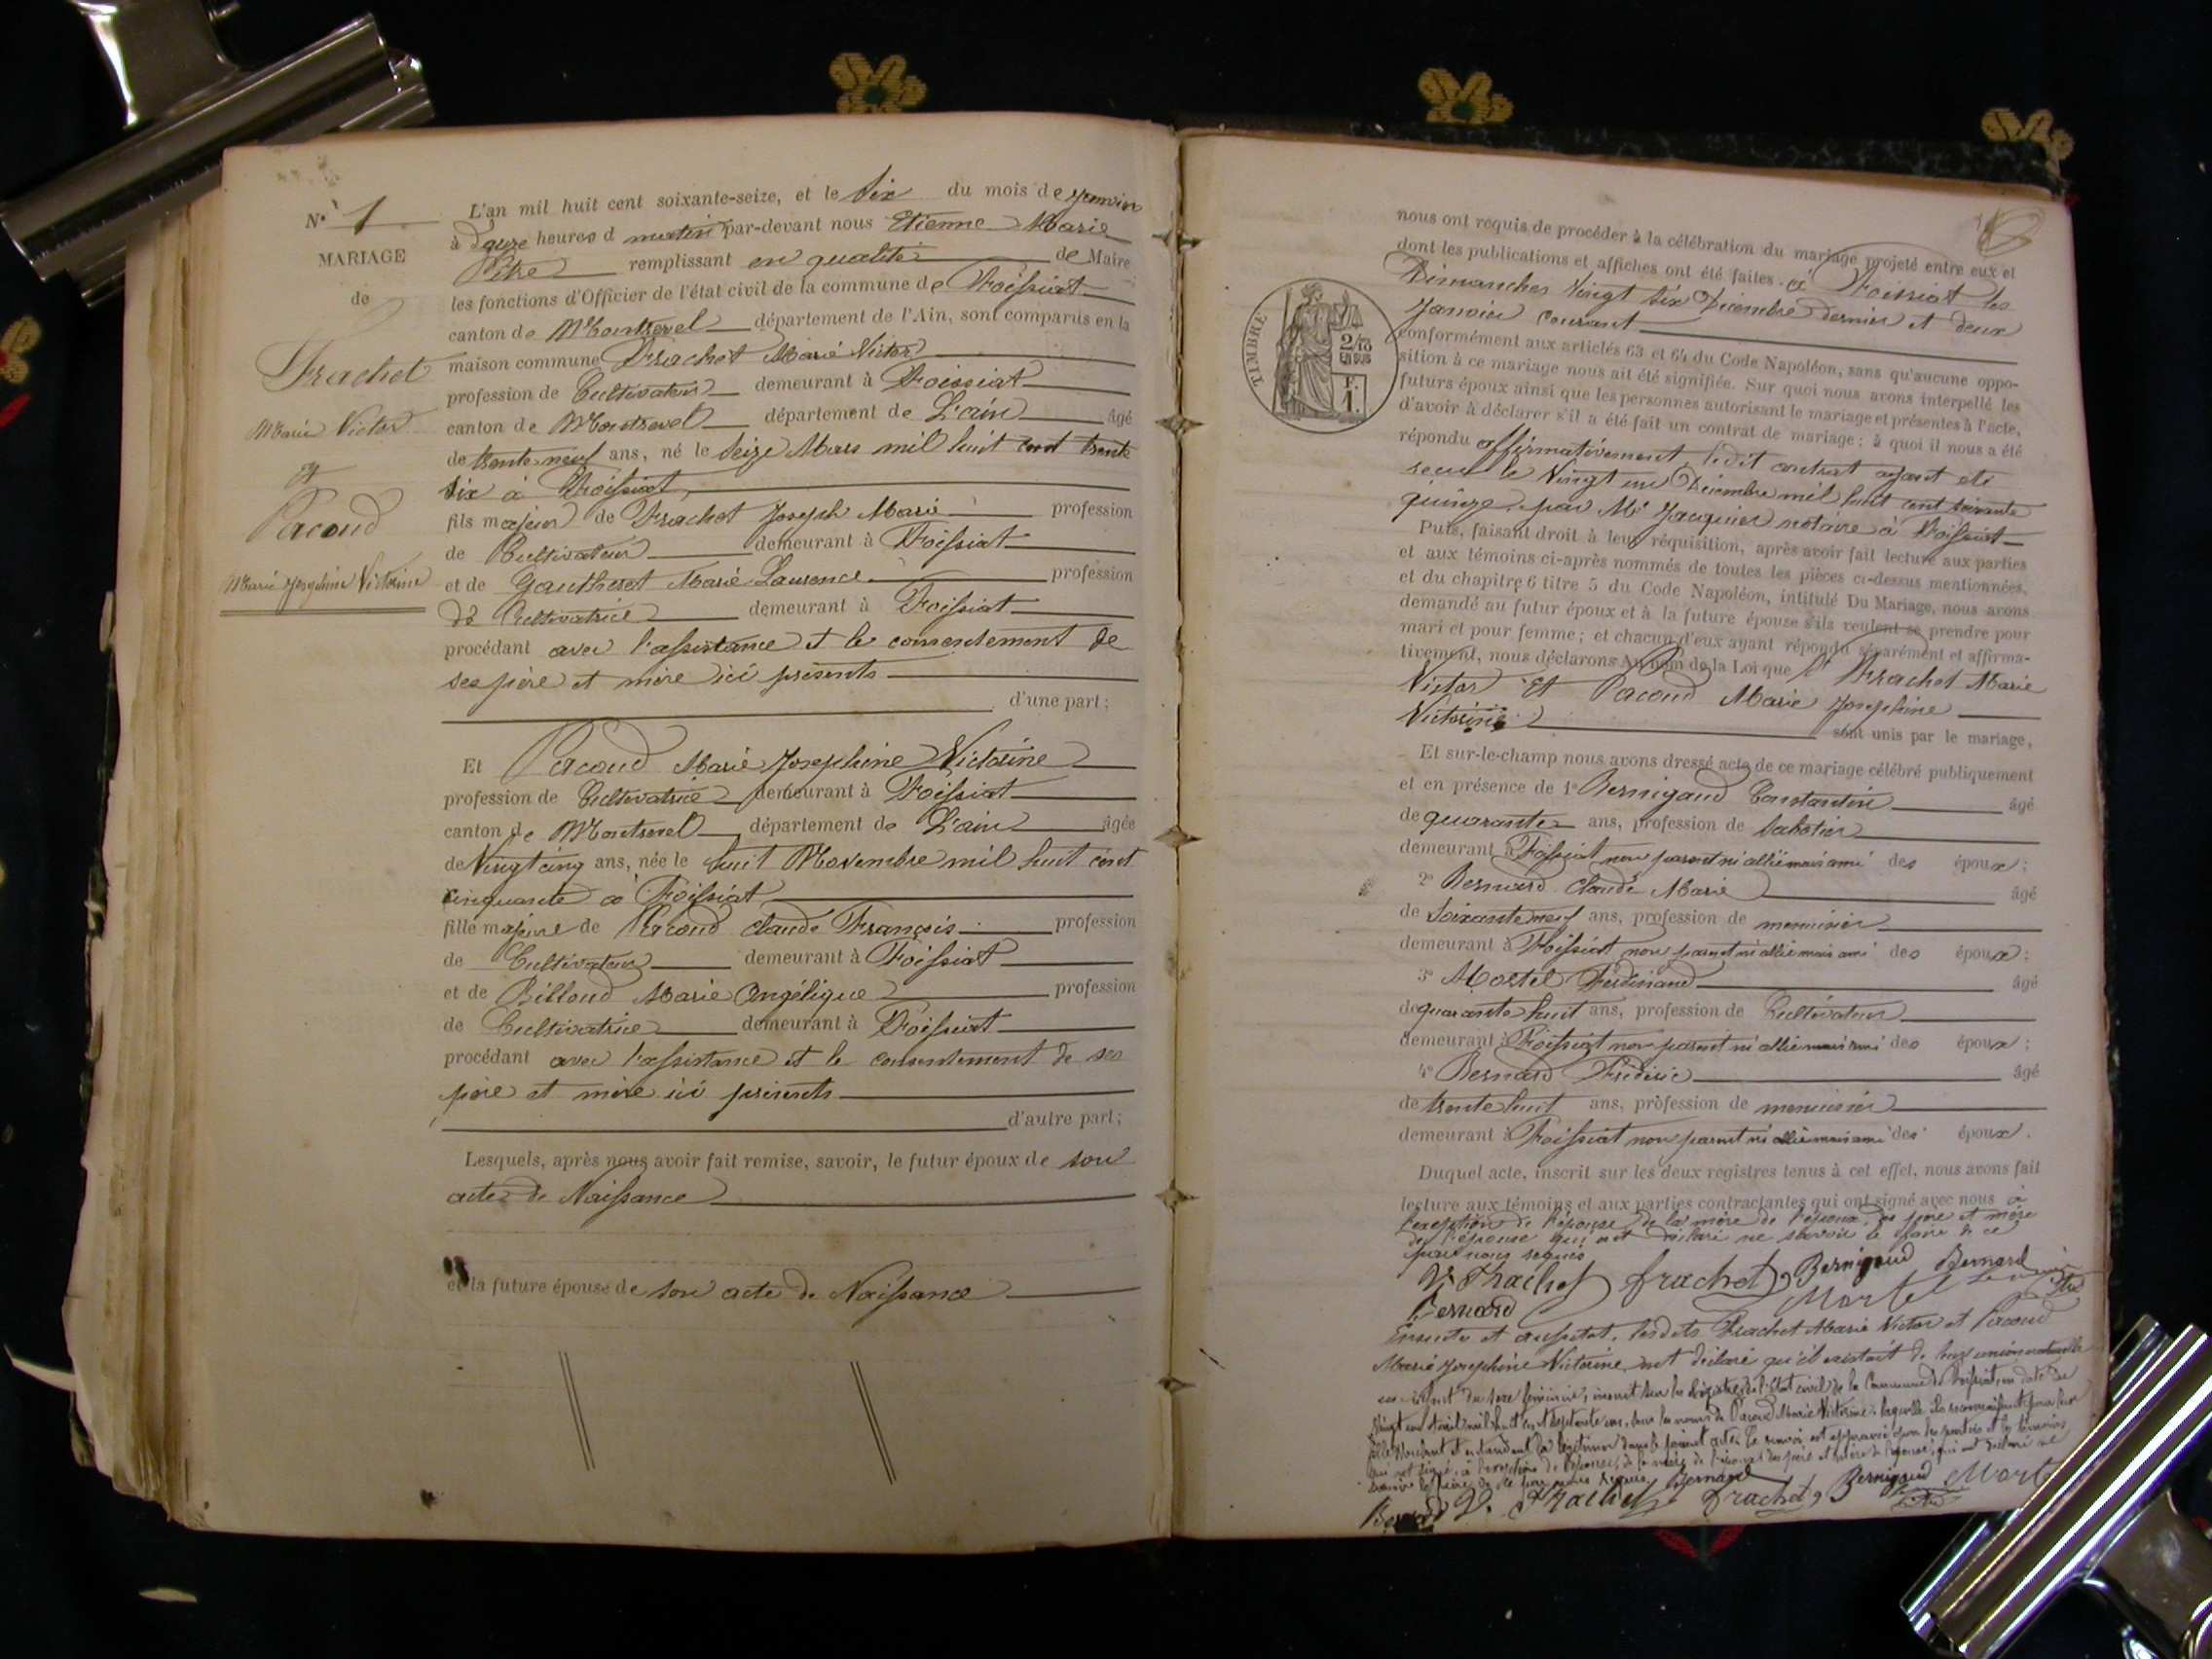 N° 1
MARIAGE
de
Frachet
Marie Victor
et
Pacoud
Marie Joséphine Victorine
L'an mil huit cent soixante-seize, et le Six du mois de Janvier
à heures d matin par-devant nous Etienne Marie
Pitre remplissant en qualité de Maire
les fonctions d'Officier de l'état civil de la commune de Foissiat
canton de Montrevel département de l'Ain, sont comparus en la
maison commune Frachet Marie Victor
profession de Cultivateur demeurant à Foissiat
canton de Montrevel département de L'ain âgé
de trente-neuf ans, né le Seize Mars mil huit cent trente
six à Foissiat
fils majeur de Frachet Joseph Marie profession
de Cultivateur demeurant à Foissiat
et de Gautheret Marie Laurence profession
de Cultivatrice demeurant à Foissiat
procédant avec l'assistance et le consentement de
ses père et mère ici présents
d'une part;
Et Pacoud Marie Joséphine Victorine
profession de Cultivatrice demeurant à Foissiat
canton de Montrevel département de L'ain âgée
de Vingt cinq ans, née le huit Novembre mil huit cent
cinquante à Foissiat
fille majeure de Pacoud Claude François profession
de Cultivateur demeurant à Foissiat
et de Billoud Marie Angélique profession
de Cultivatrice demeurant à Foissiat
procédant avec l'assistance et le consentement de ses
père et mère ici présents
d'autre part;
Lesquels, après nous avoir fait remise, savoir, le futur époux de son
acte de Naissance
et la future épouse de son acte de Naissance
TIMBRE
2/10
EN SUS
F.
1.
nous ont requis de procéder à la célébration du mariage projeté entre eux et
dont les publications et affiches ont été faites à Foissiat les
Dimanches Vingt six Décembre dernier et deux
Janvier courant
conformément aux articles 63 et 64 du Code Napoléon, sans qu'aucune oppo-
sition à ce mariage nous ait été signifiée. Sur quoi nous avons interpellé les
futurs époux ainsi que les personnes autorisant le mariage et présentes à l'acte,
d'avoir à déclarer s'il a été fait un contrat de mariage; à quoi il nous a été
répondu affirmativement ledit contrat ayant été
reçu le Vingt un Décembre mil huit cent soixante
quinze par Me Jacquier notaire à Foissiat
Puis, faisant droit à leur réquisition, après avoir fait lecture aux parties
et aux témoins ci-après nommés de toutes les pièces ci-dessus mentionnées,
et du chapitre 6 titre 5 du Code Napoléon, intitulé Du Mariage, nous avons
demandé au futur époux et à la future épouse s'ils veulent se prendre pour
mari et pour femme; et chacun d'eux ayant répondu séparément et affirma-
tivement, nous déclarons Au nom de la Loi que Frachet Marie
Victor Et Pacoud Marie Joséphine
Victorine sont unis par le mariage,
Et sur-le-champ nous avons dressé acte de ce mariage célébré publiquement
et en présence de 1° Bernigaud Constantin âgé
de quarante ans, profession de Sabotier
demeurant à Foissiat non parent ni allié mais ami des époux;
2° Bernard Claude Marie âgé
de Soixante neuf ans, profession de menuisier
demeurant à Foissiat non parent ni allié mais ami des époux;
3° Mortel Ferdinand âgé
de quarante huit ans, profession de Cultivateur
demeurant à Foissiat non parent ni allié mais ami des époux;
4° Bernard Frédéric âgé
de trente huit ans, profession de menuisier
demeurant à Foissiat non parent ni allié mais ami des époux.
Duquel acte, inscrit sur les deux registres tenus à cet effet, nous avons fait
lecture aux témoins et aux parties contractantes qui ont signé avec nous à
l'exception de l'épouse, de la mère de l'époux, des père et mère
de l'épouse qui ont déclaré ne savoir le faire de ce
par nous requis
V. Frachet frachet Bernigaud Bernard
Bernard Mortel Pitre
Ensuite et aussitôt, lesdits Frachet Marie Victor et Pacoud
Marie Joséphine Victorine ont déclaré qu'il existait de leur union naturelle
un enfant du sexe féminin, inscrit sur les Registres de l'état civil de la Commune de Foissiat, en date du
Vingt un mil huit cent Septante un, sous les noms de Pacoud Marie Victorine, laquelle ils reconnaissent pour leur
fille et entendent la légitimer dans le présent acte. Le renvoi est approuvé par les parties et les témoins
qui ont signé, à l'exception de l'épouse, de la mère de l'époux, des père et mère de l'épouse, qui ont déclaré ne
savoir le faire de ce par nous requis Bernard
Bernard V. Frachet frachet Bernigaud Mortel